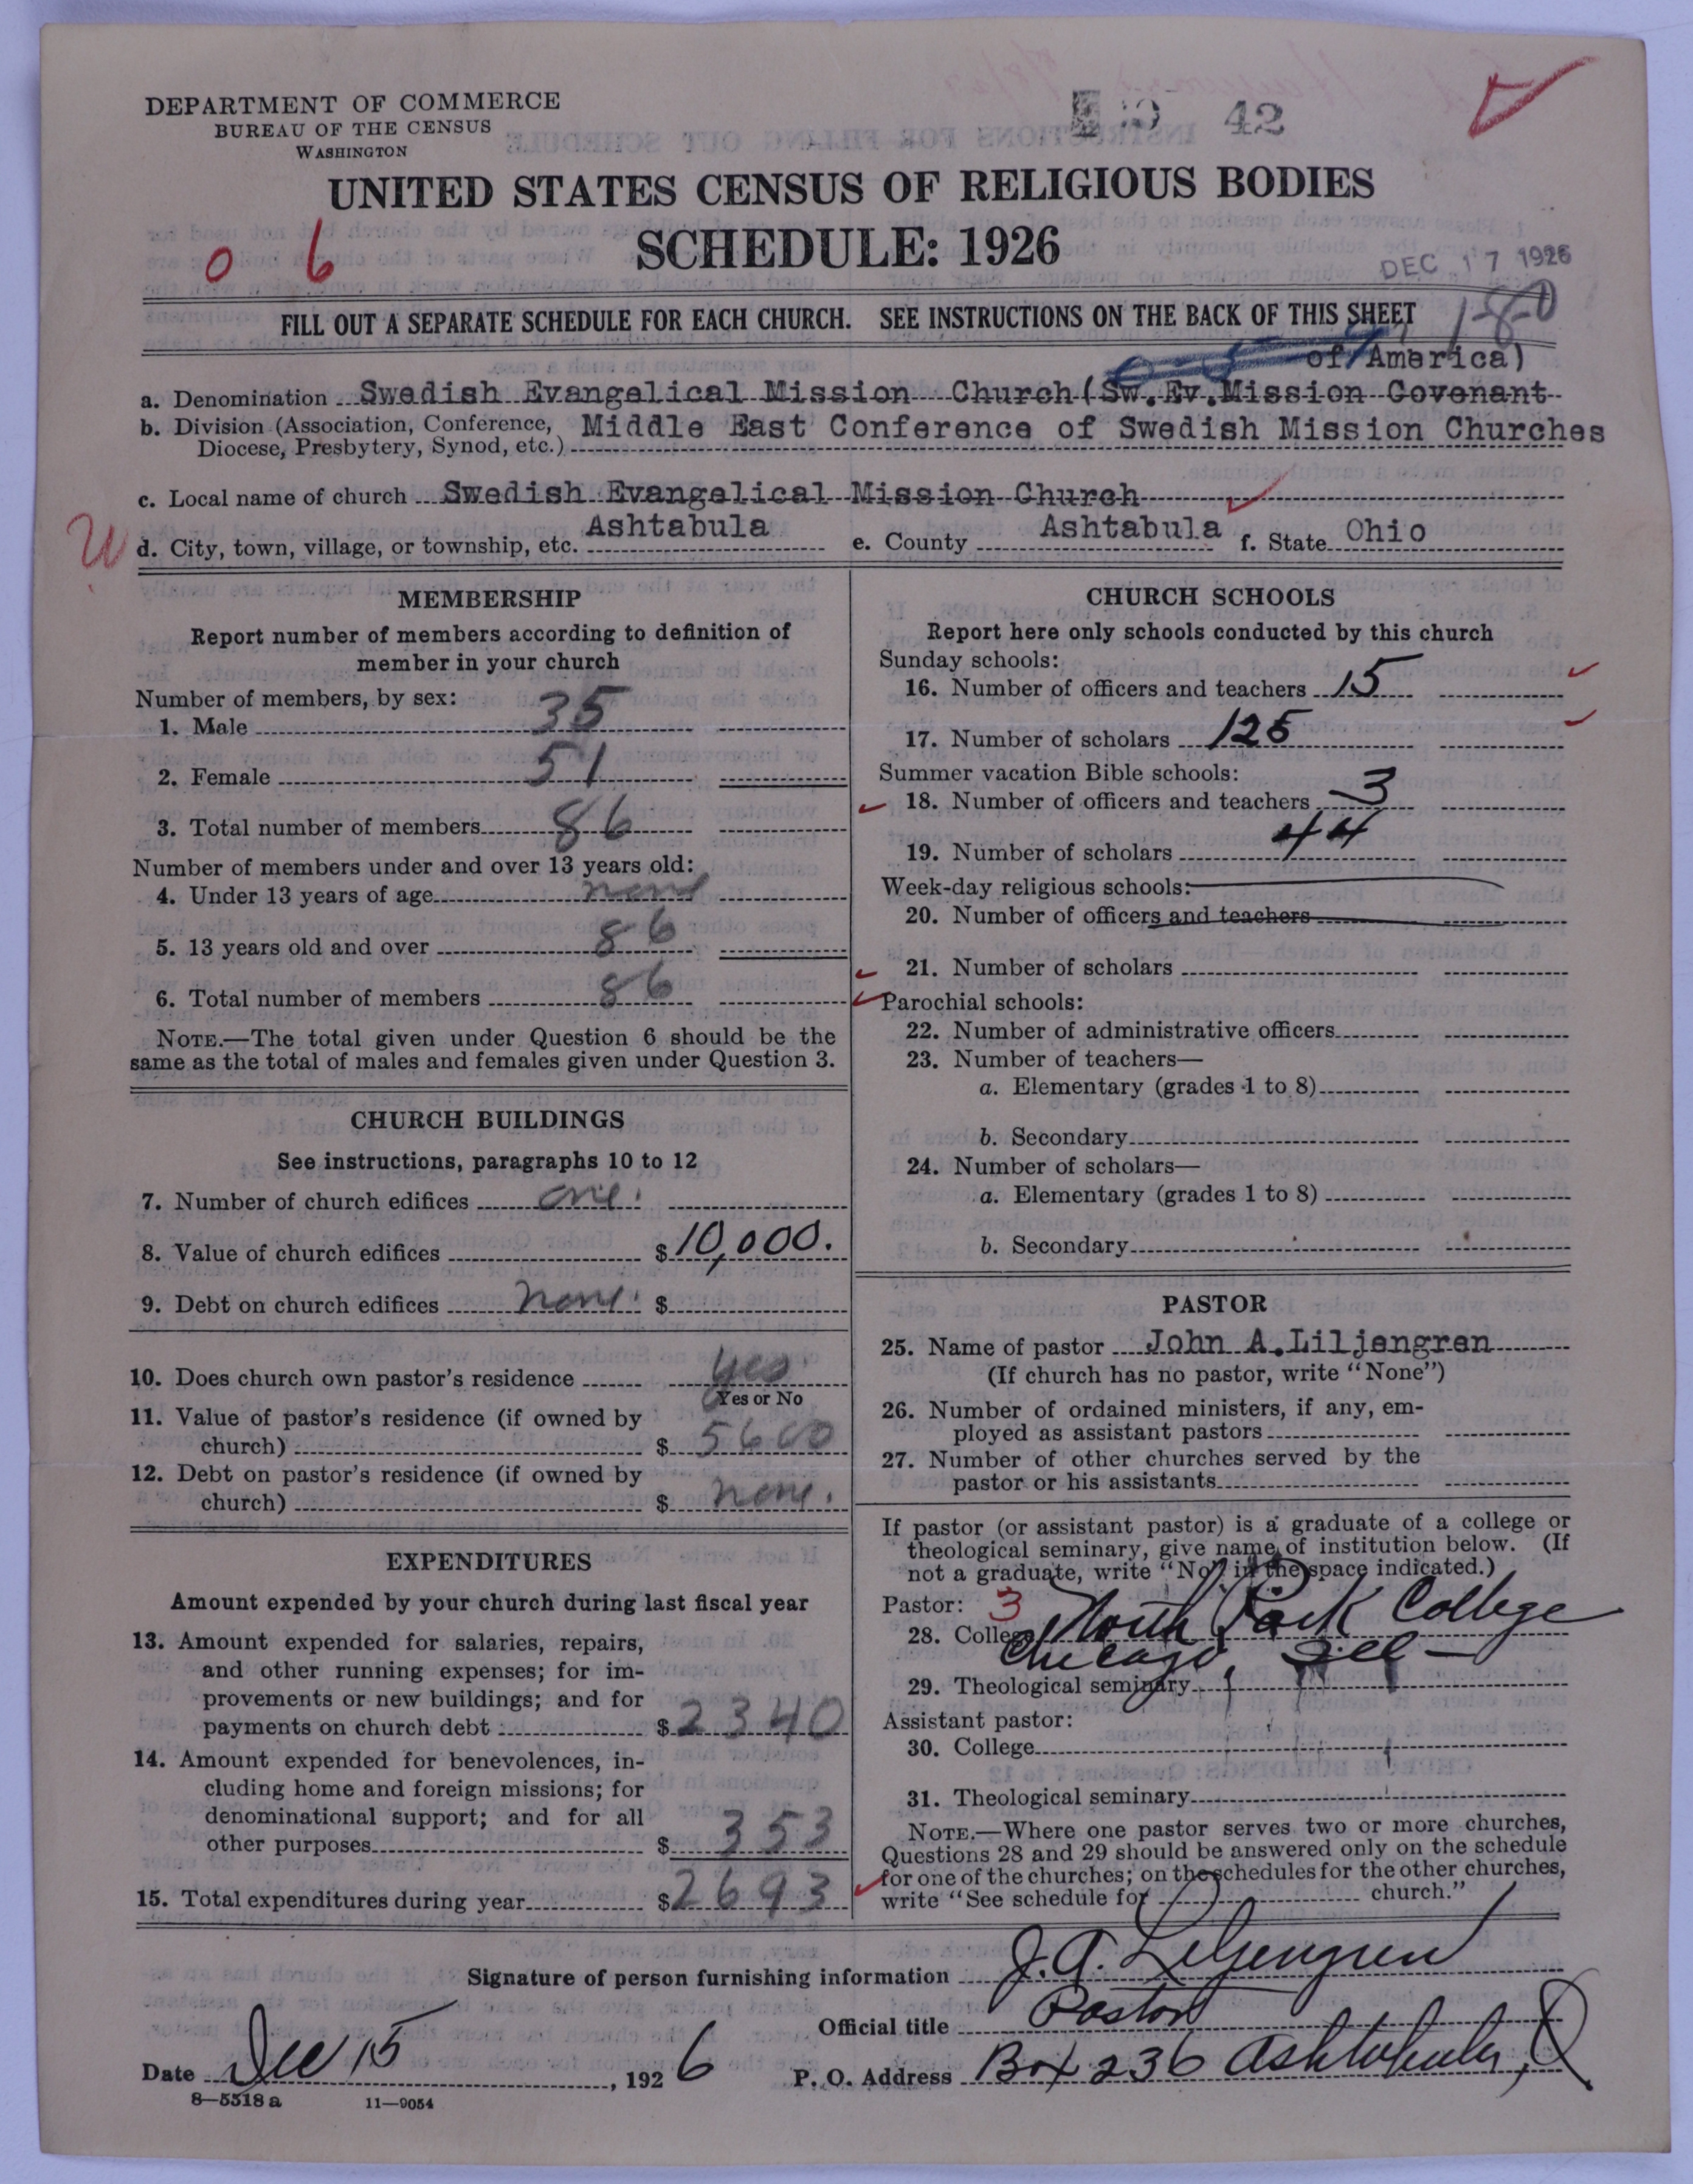 DEPARTMENT OF COMMERCE
BUREAU OF THE CENSUS
WASHINGTON
42
UNITED STATES CENSUS OF RELIGIOUS BODIES
SCHEDULE: 1926
0 6
DEC 17 1926
FILL OUT A SEPARATE SCHEDULE FOR EACH CHURCH. SEE INSTRUCTIONS ON THE BACK OF THIS SHEET
1-8-0
of America)
a. Denomination Swedish Evangelical Mission Church (Sw.Ev.Mission Covenant
b. Division (Association, Conference, Diocese, Presbytery, Synod, etc.) Middle East Conference of Swedish Mission Churches
c. Local name of church Swedish Evangelical Mission Church
d. City, town, village, or township, etc. Ashtabula e. County Ashtabula f. State Ohio
MEMBERSHIP
Report number of members according to definition of
member in your church
Number of members, by sex:
1. Male 35
2. Female 51
3. Total number of members 86
Number of members under and over 13 years old:
4. Under 13 years of age none
5. 13 years old and over 86
6. Total number of members 86
NOTE.—The total given under Question 6 should be the
same as the total of males and females given under Question 3.
CHURCH BUILDINGS
See instructions, paragraphs 10 to 12
7. Number of church edifices one.
8. Value of church edifices $10,000.
9. Debt on church edifices none. $
10. Does church own pastor's residence yes
Yes or No
11. Value of pastor's residence (if owned by
church) $ 5600
12. Debt on pastor's residence (if owned by
church) $ none.
EXPENDITURES
Amount expended by your church during last fiscal year
13. Amount expended for salaries, repairs,
and other running expenses; for im-
provements or new buildings; and for
payments on church debt $2340
14. Amount expended for benevolences, in-
cluding home and foreign missions; for
denominational support; and for all
other purposes $ 353
15. Total expenditures during year $2693
CHURCH SCHOOLS
Report here only schools conducted by this church
Sunday schools:
16. Number of officers and teachers 15
17. Number of scholars 125
Summer vacation Bible schools:
18. Number of officers and teachers 3
19. Number of scholars 44
Week-day religious schools:
20. Number of officers and teachers
21. Number of scholars
Parochial schools:
22. Number of administrative officers
23. Number of teachers—
a. Elementary (grades 1 to 8)
b. Secondary
24. Number of scholars—
a. Elementary (grades 1 to 8)
b. Secondary
PASTOR
25. Name of pastor John A.Liljengren
(If church has no pastor, write "None")
26. Number of ordained ministers, if any, em-
ployed as assistant pastors
27. Number of other churches served by the
pastor or his assistants
If pastor (or assistant pastor) is a graduate of a college or
theological seminary, give name of institution below. (If
not a graduate, write "No" in the space indicated.)
Pastor: 3
28. College North Park College
Chicago, Ill -
29. Theological seminary
Assistant pastor:
30. College
31. Theological seminary
NOTE.—Where one pastor serves two or more churches,
Questions 28 and 29 should be answered only on the schedule
for one of the churches; on the schedules for the other churches,
write "See schedule for church."
Signature of person furnishing information J.A. Liljengren
Official title Pastor
Date Dec 15, 1926 P. O. Address Box 236 Ashtabula, O
8—5518 a 11—9054